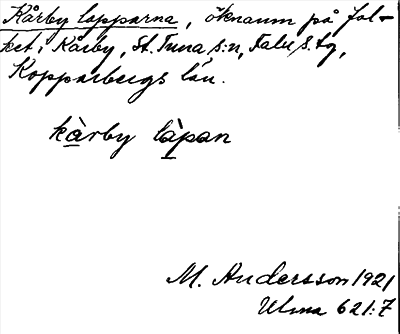 Kårby lapparna, öknamn på fol-
ket i Kårby, St. Tuna s:n, Falu s. tg,
Kopparbergs län.
kàrby làpan
M. Andersson 1921
Ulma 621:7